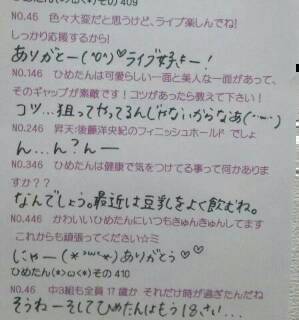 ひめたん(*>ω<*)その409
NO.46 色々大変だと思うけど、ライブ楽しんでね!
しっかり応援するから!
ありがとー(^o^)♡ライブ好きよー!
NO.146 ひめたんは可愛らしい一面と美人な一面があって、
そのギャップが素敵です!コツがあったら教えて下さい!
コツ…狙ってやってるんじゃないからなあ(・―・)
NO.246 昇天・後藤洋央紀のフィニッシュホールド でしょ
ん…ん?んー
NO.346 ひめたんは健康で気をつけてる事って何かありま
すか??
なんでしょう。最近は豆乳をよく飲むね。
NO.446 かわいいひめたんにいつもきゅんきゅんしてます
これからも頑張ってください☆ミ
じゃー(*>ω<*)ありがとう♡♡
ひめたん(*>ω<*)その 410
NO.46 中3組も全員 17歳か それだけ時が過ぎたんだね
そうねーそしてひめたんはもう18さい…